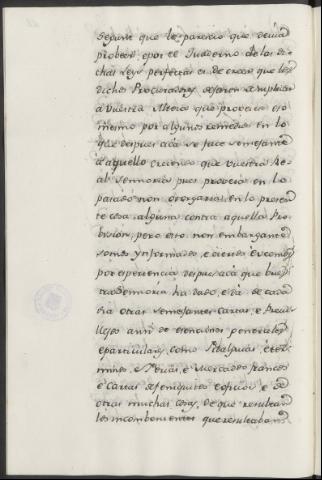 segunt que le parecio que devia
proveer, e por el quaderno de las di-
chas Leys perfectas es de creer que los
dichos Procuradores dejaron de suplicar
a vuestra Alteza que proveie eso
mesmo por algunos remedios en lo
que despues acá se face semejante
á aquello creiendo que vuestra Re-
al Sennoria pues proveió en lo
pasado non otorgaria en lo presen-
te cosa alguna contra aquella Pro-
bision, pero esto non embargante
somos ynformados, e
por esperiencia despues acá que bues-
tra Sennoria ha dado, e dá de cada
dia otras semejantes Cartas, e Previ-
llejos ansi de esenciones generales
e particulares, como e ter-
minos, e Ferias, e Mercados francos
e Cartas de feniquitos e oficios, e de
otras muchas cosas, de que resultan
los inconbenientes que resultaban